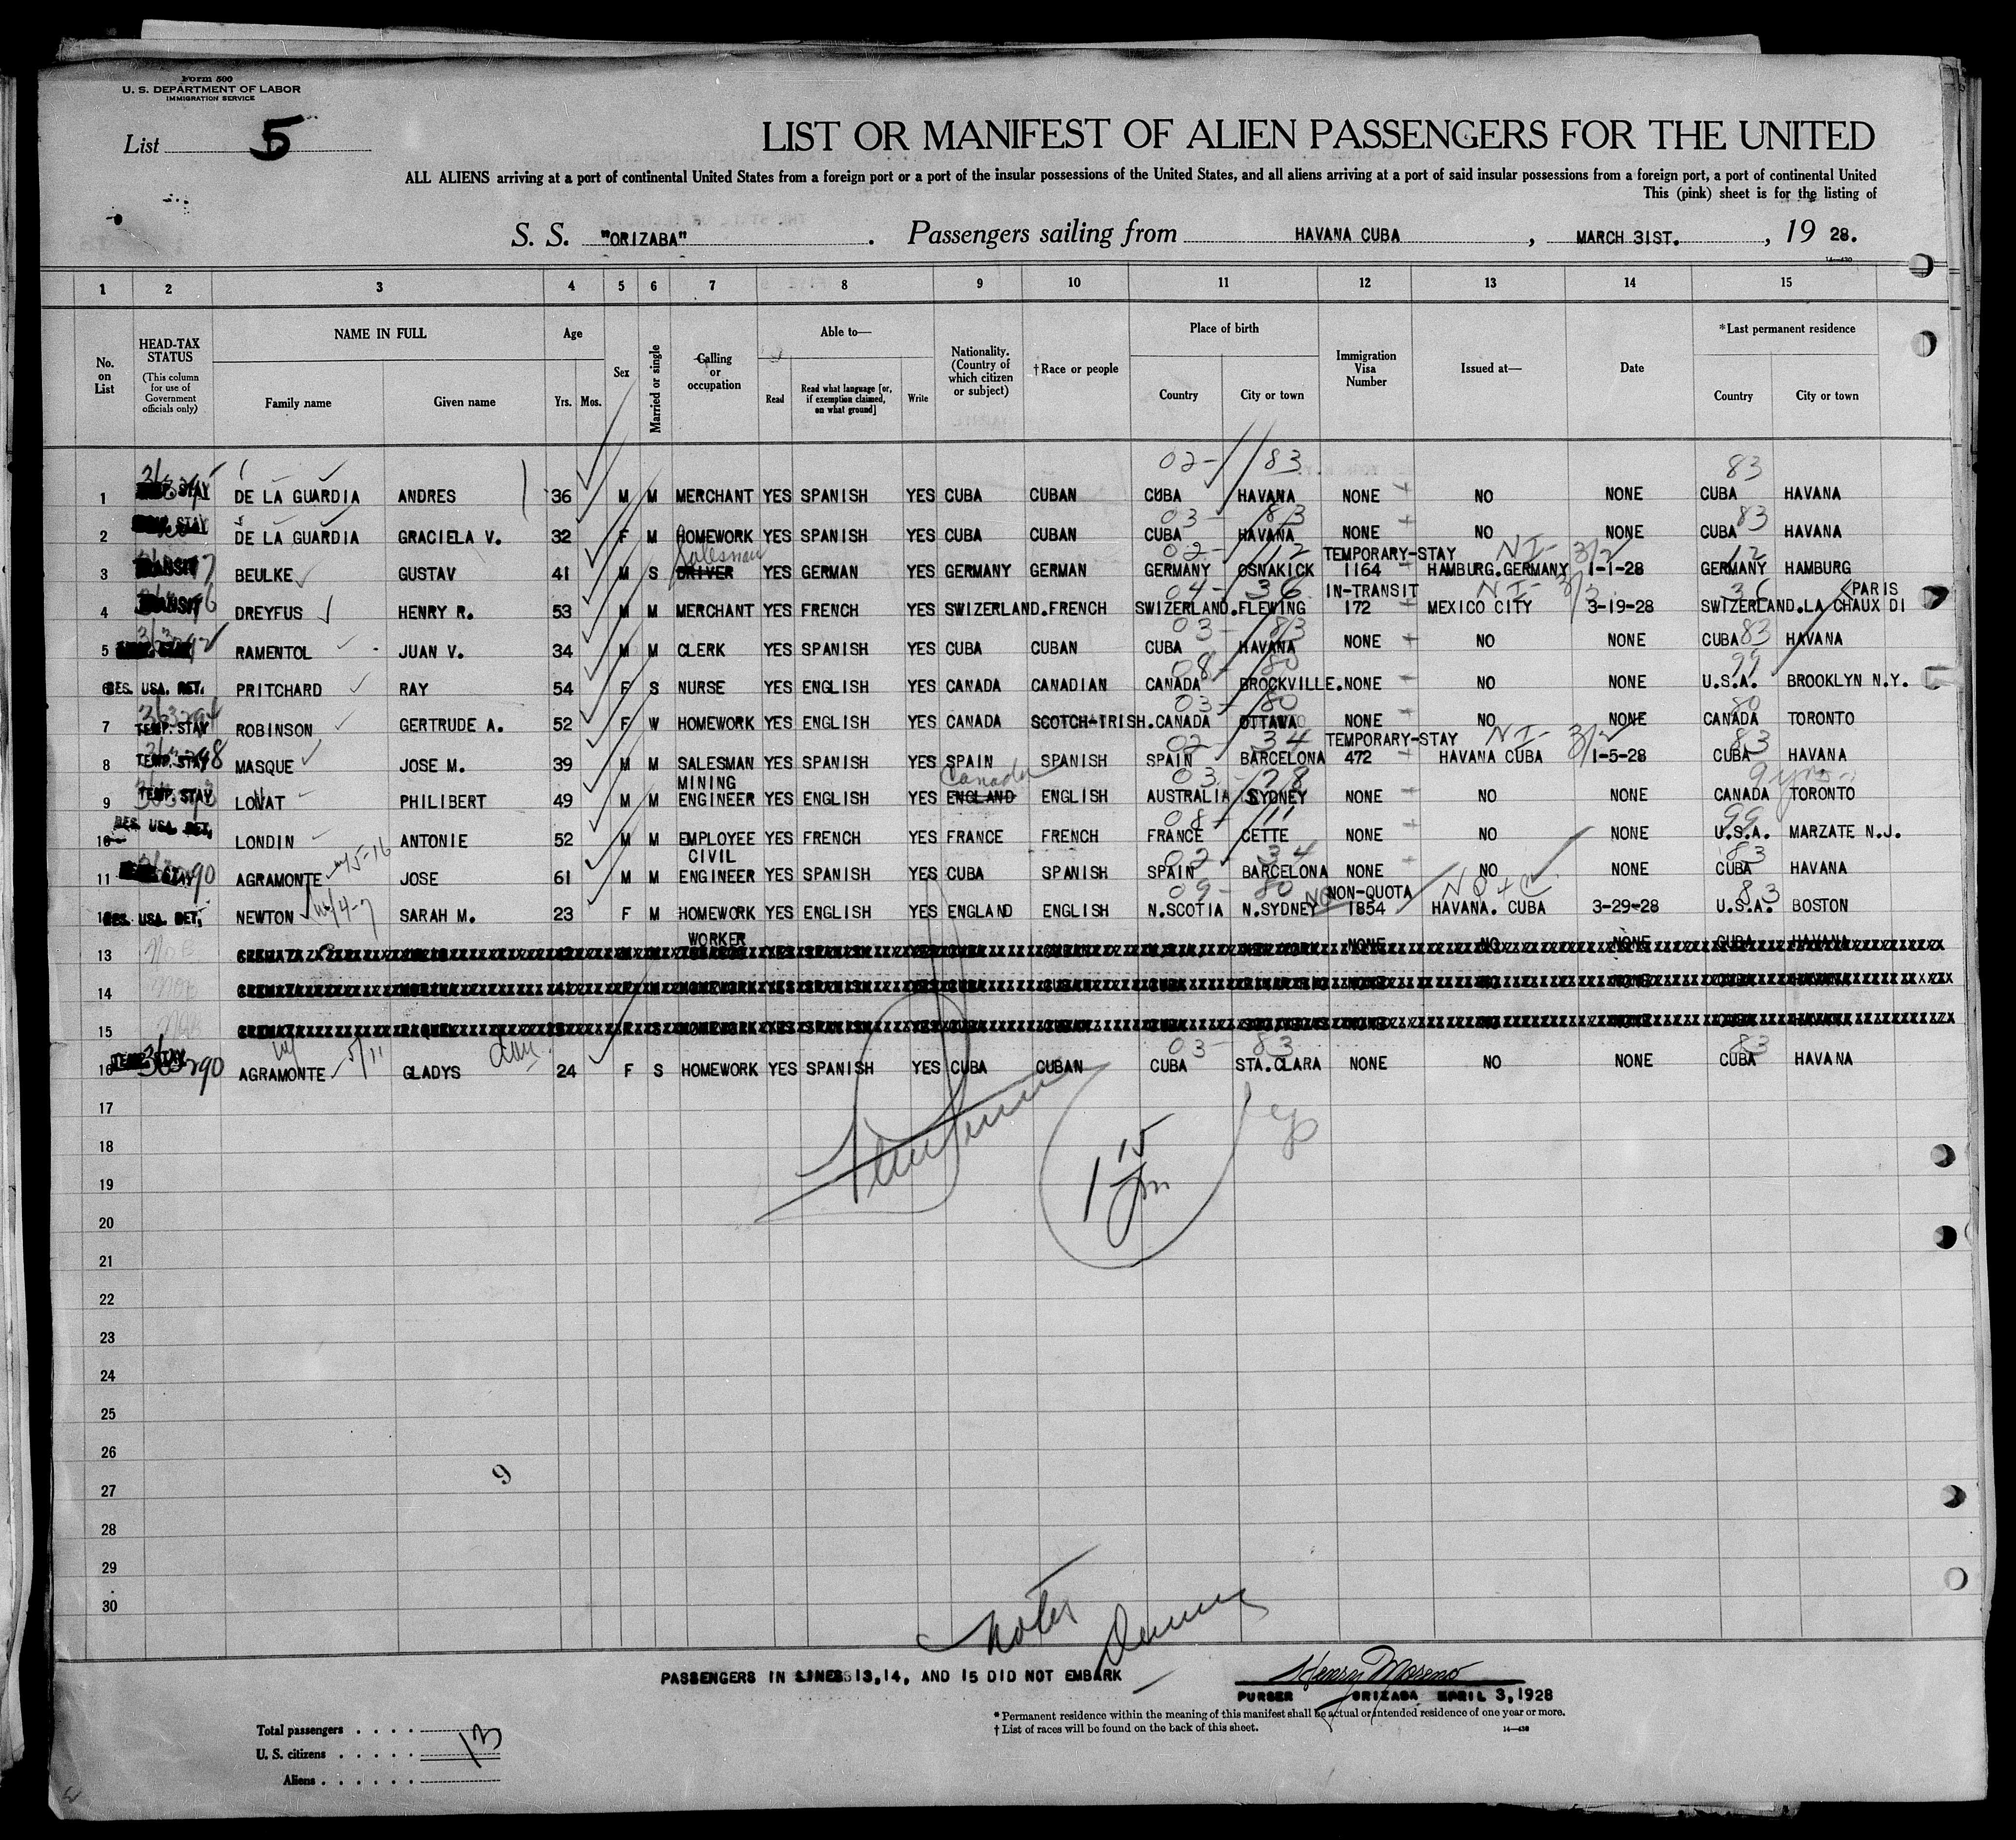 Form 500
U. S. DEPARTMENT OF LABOR
IMMIGRATION SERVICE
List 5
LIST OR MANIFEST OF ALIEN PASSENGERS FOR THE UNITED
ALL ALIENS arriving at a port of continental United States from a foreign port or a port of the insular possessions of the United States, and all aliens arriving at a port of said insular possessions from a foreign port, a port of continental United
This (pink) sheet is for the listing of
S. S. "ORIZABA" . Passengers sailing from HAVANA CUBA , MARCH 31ST. , 19 28.
1 2 3 4 5 6 7 8 9 10 11 12 13 14 15
No. on List HEAD-TAX STATUS (This column for use of Government officials only) NAME IN FULL Family name Given name Age Yrs. Mos. Sex Married or single Calling or occupation Able to— Read Read what language [or, if exemption claimed, on what ground] Write Nationality. (Country of which citizen or subject) †Race or people Place of birth Country City or town Immigration Visa Number Issued at— Date *Last permanent residence Country City or town
02- 83 83
1 STAY DE LA GUARDIA ANDRES 36 M M MERCHANT YES SPANISH YES CUBA CUBAN CUBA HAVANA NONE NO NONE CUBA HAVANA
03- 83 83
2 STAY DE LA GUARDIA GRACIELA V. 32 F M HOMEWORK YES SPANISH YES CUBA CUBAN CUBA HAVANA NONE NO NONE CUBA HAVANA
Salesman 02- 112 TEMPORARY-STAY NI- 3/2 12
3 TRANSIT BEULKE GUSTAV 41 M S DRIVER YES GERMAN YES GERMANY GERMAN GERMANY OSNAKICK 1164 HAMBURG.GERMANY 1-1-28 GERMANY HAMBURG
04- 36 IN-TRANSIT NI- 36 PARIS
4 TRANSIT DREYFUS HENRY R. 53 M M MERCHANT YES FRENCH YES SWIZERLAND.FRENCH SWIZERLAND.FLEWING 172 MEXICO CITY 3-19-28 SWIZERLAND.LA CHAUX DI
03- 83 83
5 RAMENTOL JUAN V. 34 M M CLERK YES SPANISH YES CUBA CUBAN CUBA HAVANA NONE NO NONE CUBA HAVANA
08- 80 99
6 RES. USA. RET. PRITCHARD RAY 54 F S NURSE YES ENGLISH YES CANADA CANADIAN CANADA BROCKVILLE.NONE NO NONE U.S.A. BROOKLYN N.Y.
03- 80 80
7 TEMP. STAY ROBINSON GERTRUDE A. 52 F W HOMEWORK YES ENGLISH YES CANADA SCOTCH-IRISH.CANADA OTTAWA NONE NO NONE CANADA TORONTO
02- 34 TEMPORARY-STAY NI- 3/2 83
8 TEMP. STAY MASQUE JOSE M. 39 M M SALESMAN YES SPANISH YES SPAIN SPANISH SPAIN BARCELONA 472 HAVANA CUBA 1-5-28 CUBA HAVANA
MINING Canada 03- 28 9 yrs-
9 TEMP. STAY LOVAT PHILIBERT 49 M M ENGINEER YES ENGLISH YES ENGLAND ENGLISH AUSTRALIA SYDNEY NONE NO NONE CANADA TORONTO
08- 11 99
10 RES. USA. RET. LONDIN ANTONIE 52 M M EMPLOYEE YES FRENCH YES FRANCE FRENCH FRANCE CETTE NONE NO NONE U.S.A. MARZATE N.J.
5-16 CIVIL 02- 34 83
11 STAY AGRAMONTE JOSE 61 M M ENGINEER YES SPANISH YES CUBA SPANISH SPAIN BARCELONA NONE NO NONE CUBA HAVANA
09- 80 NON-QUOTA 83
12 RES. USA. RET. NEWTON SARAH M. 23 F M HOMEWORK YES ENGLISH YES ENGLAND ENGLISH N.SCOTIA N.SYDNEY 1854 HAVANA. CUBA 3-29-28 U.S.A. BOSTON
WORKER
13 YES SPANISH NONE NO NONE CUBA HAVANA
14 HOMEWORK YES SPANISH
15 HOMEWORK YES SPANISH
5/11 03- 83 83
16 TEMP. STAY AGRAMONTE GLADYS 24 F S HOMEWORK YES SPANISH YES CUBA CUBAN CUBA STA.CLARA NONE NO NONE CUBA HAVANA
17
18
1 15 pm
19
20
21
22
23
24
25
26
9
27
28
29
30
PASSENGERS IN LINES 13,14, AND 15 DID NOT EMBARK
Henry Moreno
PURSER ORIZABA APRIL 3, 1928
* Permanent residence within the meaning of this manifest shall be actual or intended residence of one year or more.
† List of races will be found on the back of this sheet.
14—430
Total passengers
U. S. citizens 13
Aliens